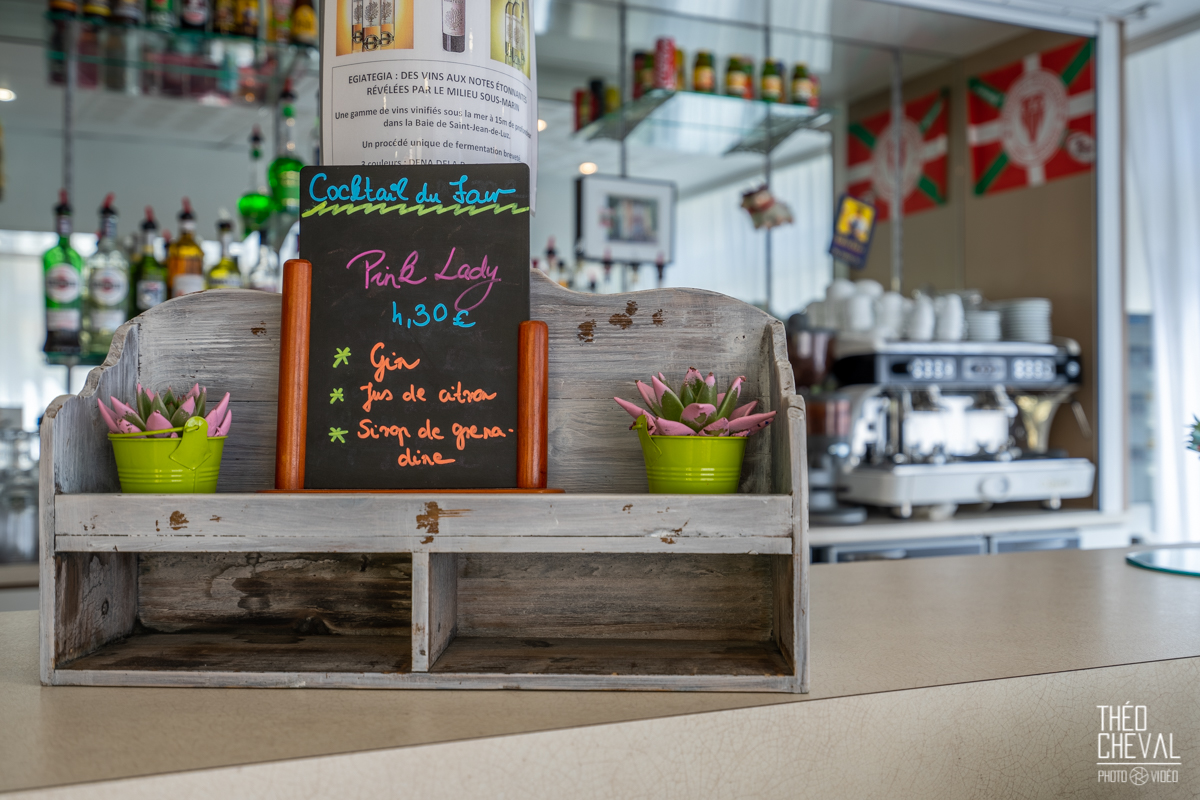 EGIATEGIA : DES VINS AUX NOTES ÉTONNANTES
RÉVÉLÉES PAR LE MILIEU SOUS-MARIN
Une gamme de vins vinifiés sous la mer à 15m de
dans la Baie de Saint-Jean-de-Luz.
Un procédé unique de fermentation
3 couleurs : DENA DELA
Cocktail du Jour
Pink Lady
4,30 €
* Gin
* Jus de citron
* Sirop de grena-
dine
THÉO
CHEVAL
PHOTO VIDÉO